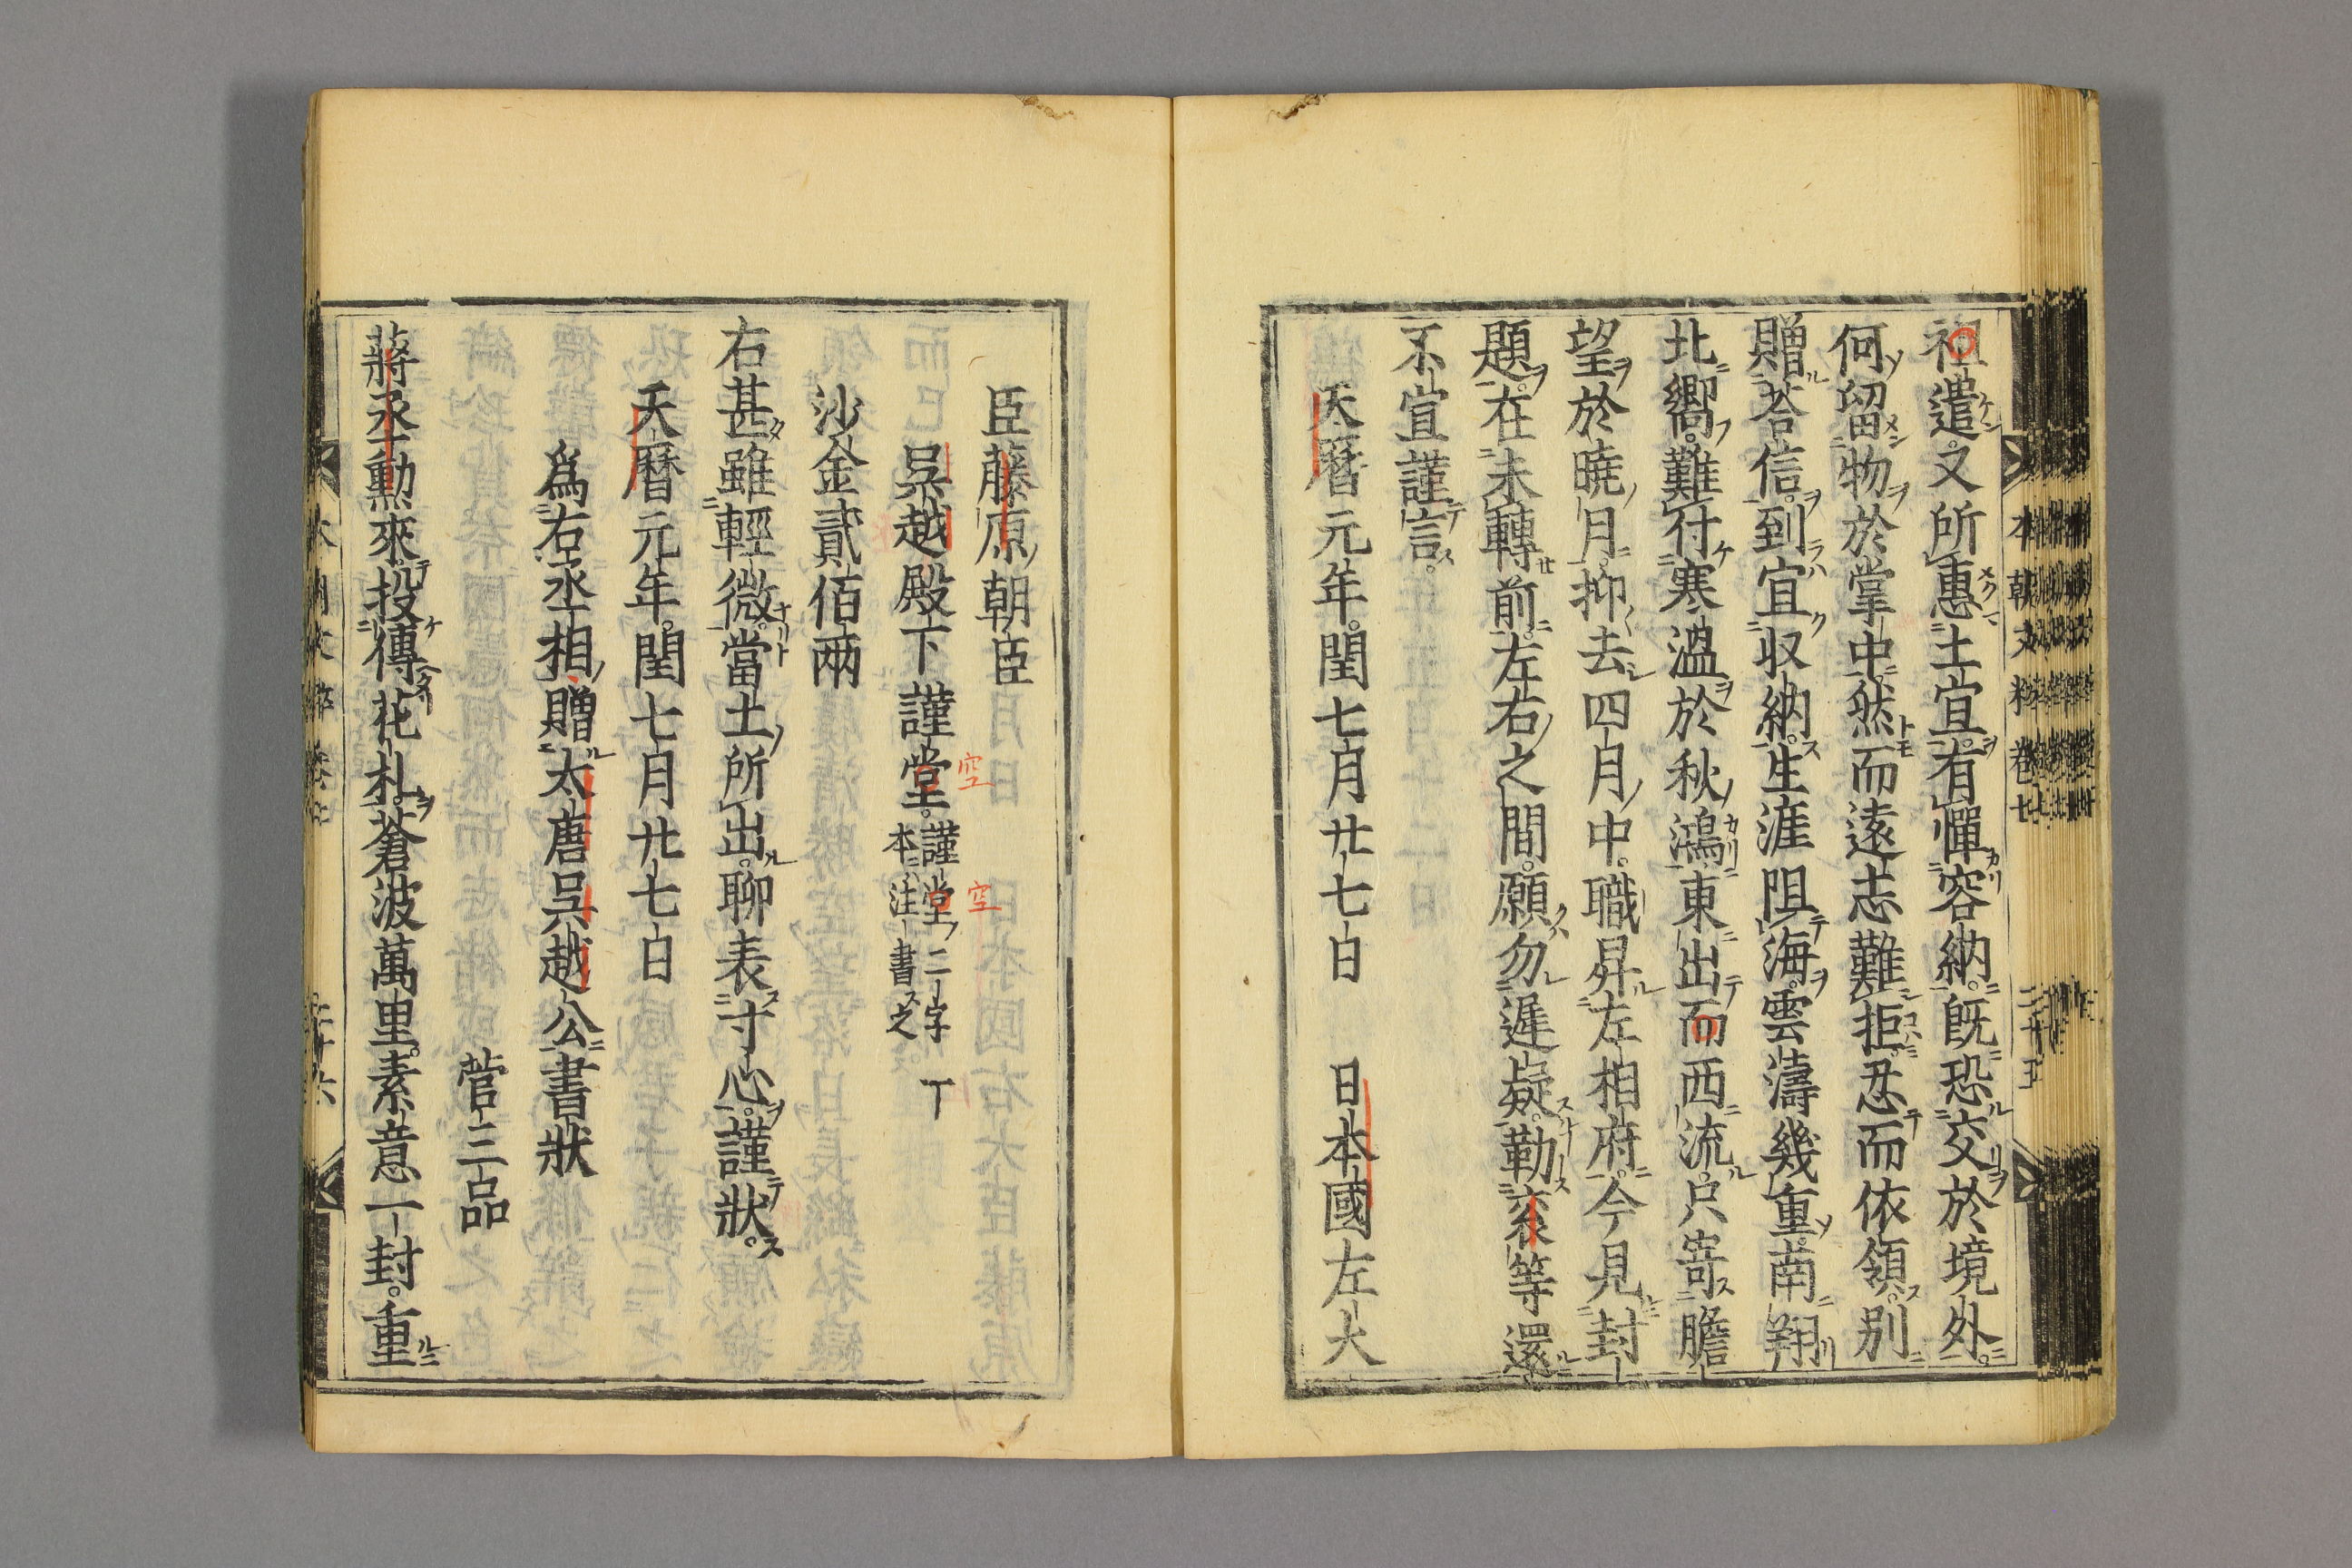 祖遣又所惠土宜有憚容納既恐交於境外
何留物於掌中然而遠志難拒忍而依領別
贈荅信到宜収納生涯阻海雲濤幾重南翔
北嚮難付寒温於秋鴻東出而西流只寄膽
望於曉月抑去四月中職昇左相府今見封
題在未轉前左右之間願勿遲疑勒袞等還
不宣謹言
天曆元年閏七月廿七日　日本國左大
臣藤原朝臣
吳越殿下謹堂謹堂二字本注書之
沙金貳佰兩
右甚雖輕微當土所出聊表寸心謹狀
天曆元年閏七月廿七日
為右丞相贈太唐吳越公書狀
菅三品
蔣丞勳來投傳花札蒼波萬里素意一封重
本朝文粹卷七
二十五